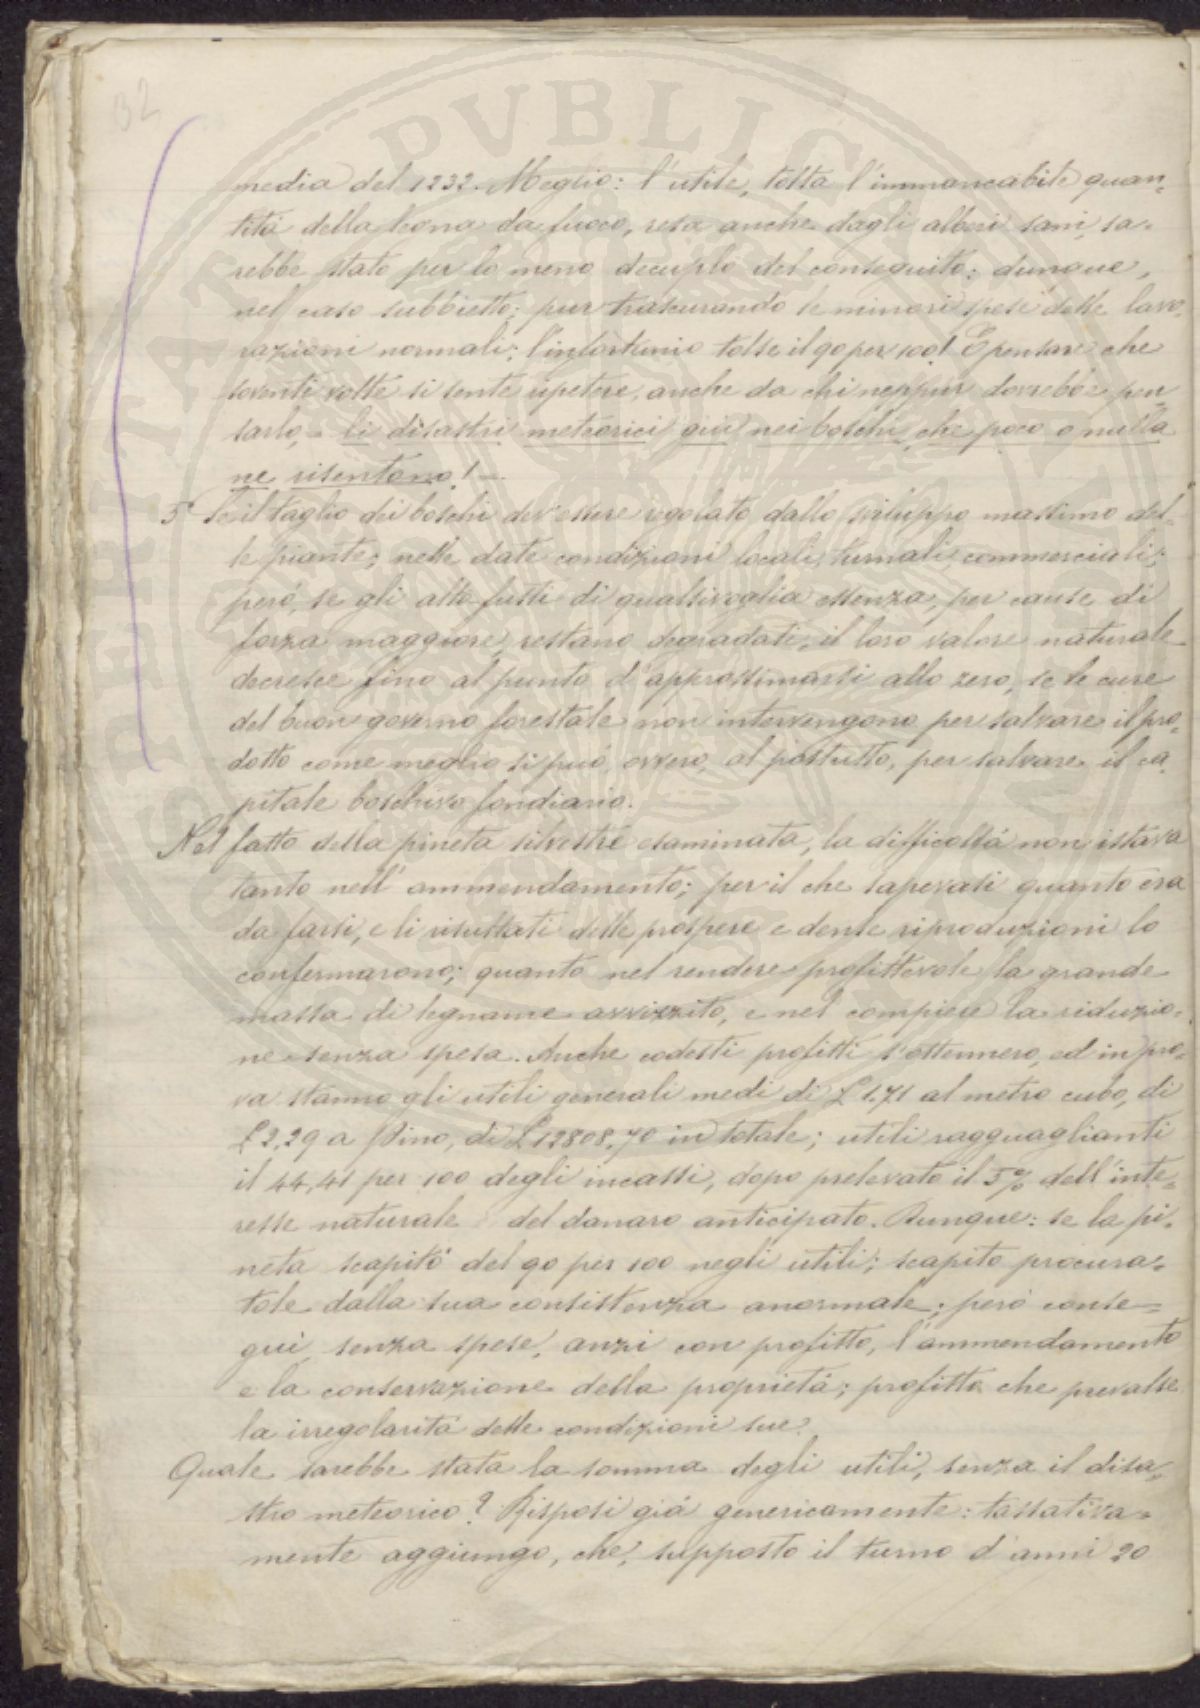 32
media del 1232. Meglio: l'utile, tolta l'immancabile quan-
titá della legna da fuoco, resa anche dagli alberi sani, sa-
rebbe stato per lo meno decuplo del conseguito: dunque,
nel caso subbietto; pur trascurando le minori spese delle lavo-
razioni normali; l'infortunio tolse il 90 per 100! E pensare che
soventi volte si sente ripetere, anche da chi neppur dovrebbe pen-
sarlo, - li disastri meteorici giú nei boschi, che poco o nulla
ne risentono! -
5° Se il taglio dei boschi dev'essere regolato dallo sviluppo massimo del-
le piante; nelle date condizioni locali, turnali, commerciali;
peró, se gli alto fusti di qualsivoglia essenza, per cause di
forza maggiore, restano degradati, il loro valore naturale
decresce fino al punto d'approssimarsi allo zero, se le cure
del buon governo forestale non intervengono per salvare il pro-
dotto come meglio si può, ovvero, al postutto, per salvare il ca-
pitale boschivo fondiario.
Nel fatto della pineta silvestre esaminata, la difficoltá non istava
tanto nell'ammendamento; per il che sapevasi quanto era
da farsi, e li risultati delle prospere e dense riproduzioni lo
confermarono; quanto nel rendere profittevole la grande
massa di legname avvizzito, e nel compiere la riduzio-
ne senza spesa. Anche codesti profitti s'ottennero, ed in pro-
va stanno gli utili generali medi di £ 1.71 al metro cubo, di
£ 2,29 a Pino, di £ 12808,70 in totale; utili ragguaglianti
il 44,41 per 100 degli incassi, dopo prelevato il 5% dell'inte-
resse naturale del danaro anticipato. Dunque: se la pi-
neta scapitò del 90 per 100 negli utili; scapito procura-
tole dalla sua consistenza anormale; però conse-
guì, senza spese, anzi con profitto, l'ammendamento
e la conservazione della proprietá; profitto che prevalse
la irregolaritá delle condizioni sue.
Quale sarebbe stata la somma degli utili, senza il disa-
stro meteorico? Risposi giá genericamente: tassativa-
mente aggiungo, che, supposto il turno d'anni 20